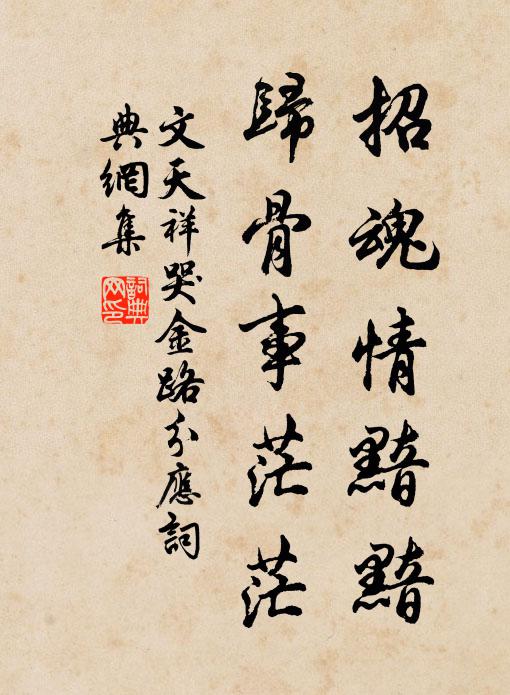 招魂情黯黯
歸骨事茫茫
文天祥哭金路分應詞
典網集
詞典
网印